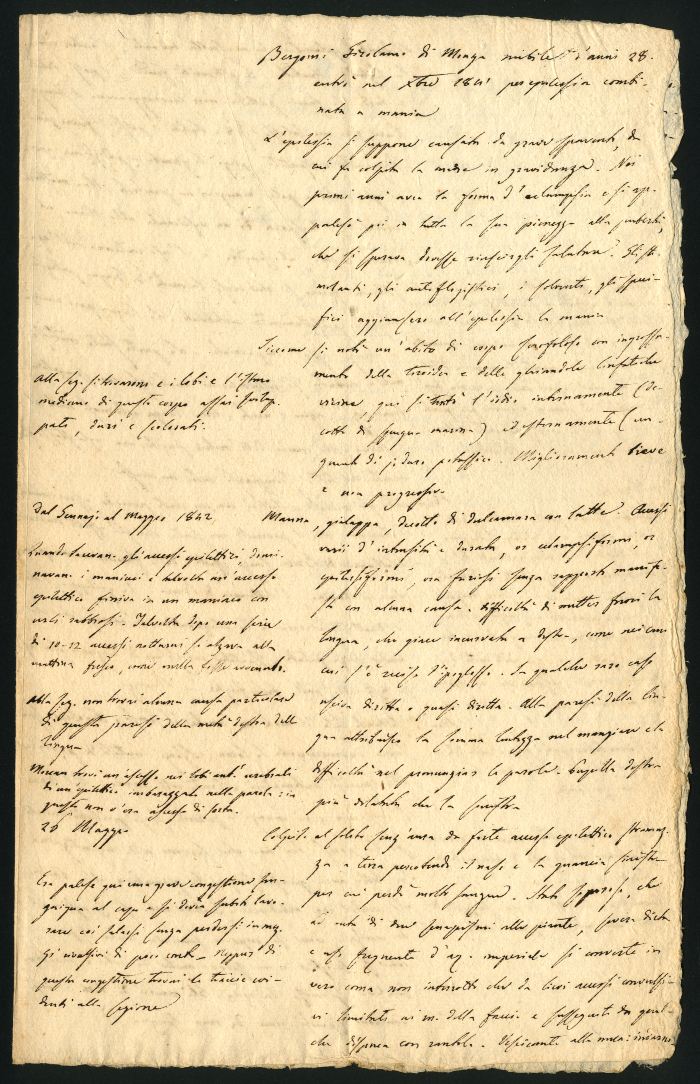 Bergomi Girolamo di Monza nubile d'anni 28.
entrò nel Xbre 1841 per epilessia combi-
nata a mania
L'epilessia si suppone causata da grave spavento, da
cui fu colpita la madre in gravidanza. Nei
primi anni avea la forma d'eclampsia e si ap-
palesò poi in tutta la sua pienezza alla pubertà,
che si sperava dovesse riuscirgli salutare. Gli sti-
molanti, gli antiflogistici, i solventi, gli speci-
fici aggiunsero all'epilessia la mania
Siccome si notò un'abito di corpo scrofoloso con ingrossa-
mento della tiroidea e delle ghiandole linfatiche
vicine qui si tentò l'iodio internamente (De-
cotto di spugna marina) ed esternamente (un-
guento di joduro potassico. Miglioramento breve
e non progressivo.
Alla sez. si trovarono i lobi e l'istmo
mediano di questo corpo assai svilup-
pato, duri e
Dal Gennajo al Maggio 1842
Manna, gialappa, decotto di dulcamara con latte. Accessi
varii d'intensità e durata, or eclampsiformi, or
epilessiformi, ora furiosi senza rapporto manife-
sto con alcuna causa. Difficoltà di metter fuori la
lingua, che giace incurvata a destra, come nei cani
cui s'è reciso l'ipoglosso. In qualche raro caso
usciva diritta o quasi diritta. Alla paresi della lin-
gua attribuisco la somma lentezza nel mangiare e la
difficoltà nel pronunziar le parole. Pupilla destra
più dilatata che la sinistra
Quando tacevan gli accessi epilettici, domi-
navan i maniaci e talvolta un'accesso
epilettico finiva in un maniaco con
urli rabbiosi. Talvolta dopo una serie
di 10-12 accessi notturni si alzava alla
mattina fresco, come nulla fosse avvenuto.
Alla sez. non trovai alcuna causa particolare
di questa paresi della metà destra della
lingua
trovai un'ascesso nei lobi ant. cerebrali
di un epilettico imbarazzato nella parola: in
questo non v'era ascesso di sorta.
25 Maggio
Colpito al solito senz'aura da forte accesso epilettico stramaz-
za a terra percotendo il naso e la guancia sinistra
per cui perdè molto sangue. Stato soporoso, che
ad onta di due senapismi alle piante, severa dieta
e uso frequente d'aq. imperiale si converte in
vero coma non interrotto che da lievi accessi convulsi-
vi limitati ai m. della faccia e susseguiti da qual-
che dispnea con rantolo. Vescicante alla nuca: invano
Era palese qui una grave congestione san-
guigna al capo e si dovea subito lavo-
rare coi salassi senza perdersi in mez-
zi rivulsivi di poco conto. Neppur di
questa congestione trovai le traccie evi-
denti alla sezione